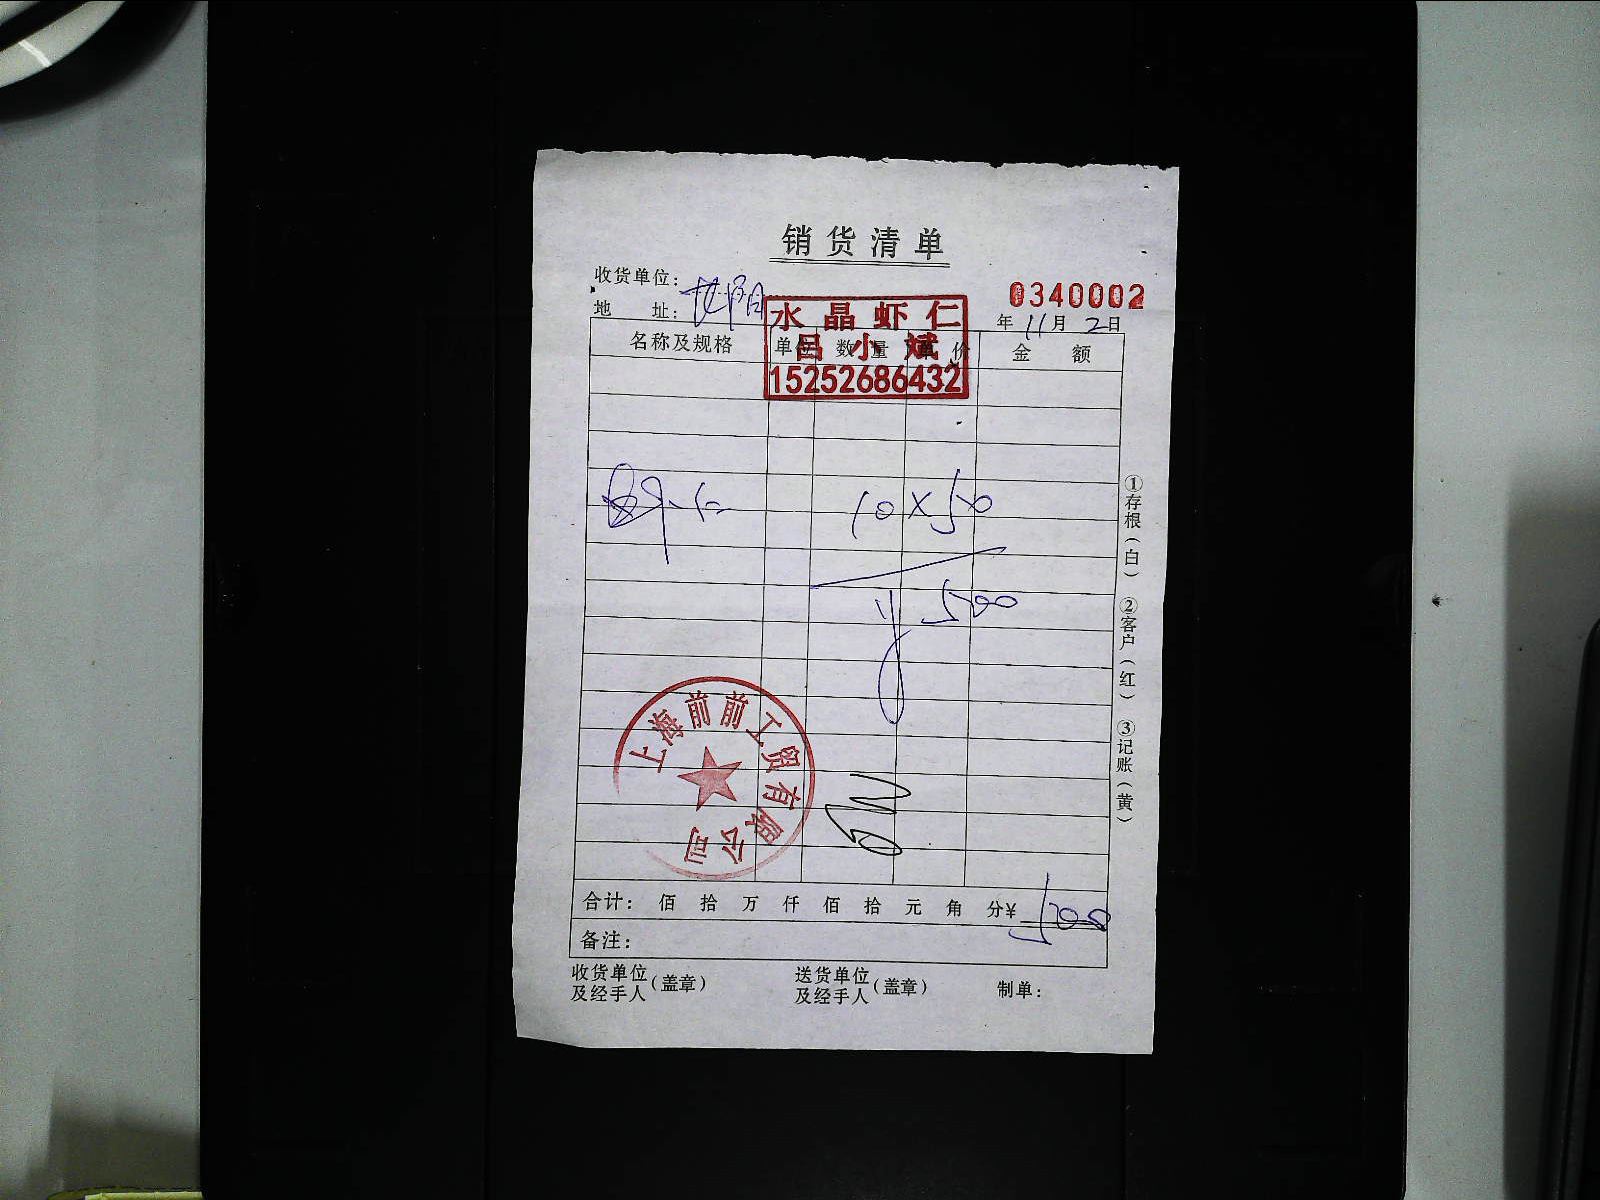 销货清单
收货单位:
0340002
地 址:
年 11月 2日
水晶虾仁
吕小斌
15252686432
名称及规格 单位 数量 单价 金额
10×50
500
上海前前工贸有限公司
合计: 佰 拾 万 仟 佰 拾 元 角 分¥ 500
备注:
收货单位及经手人(盖章) 送货单位及经手人(盖章) 制单:
①存根(白) ②客户(红) ③记账(黄)